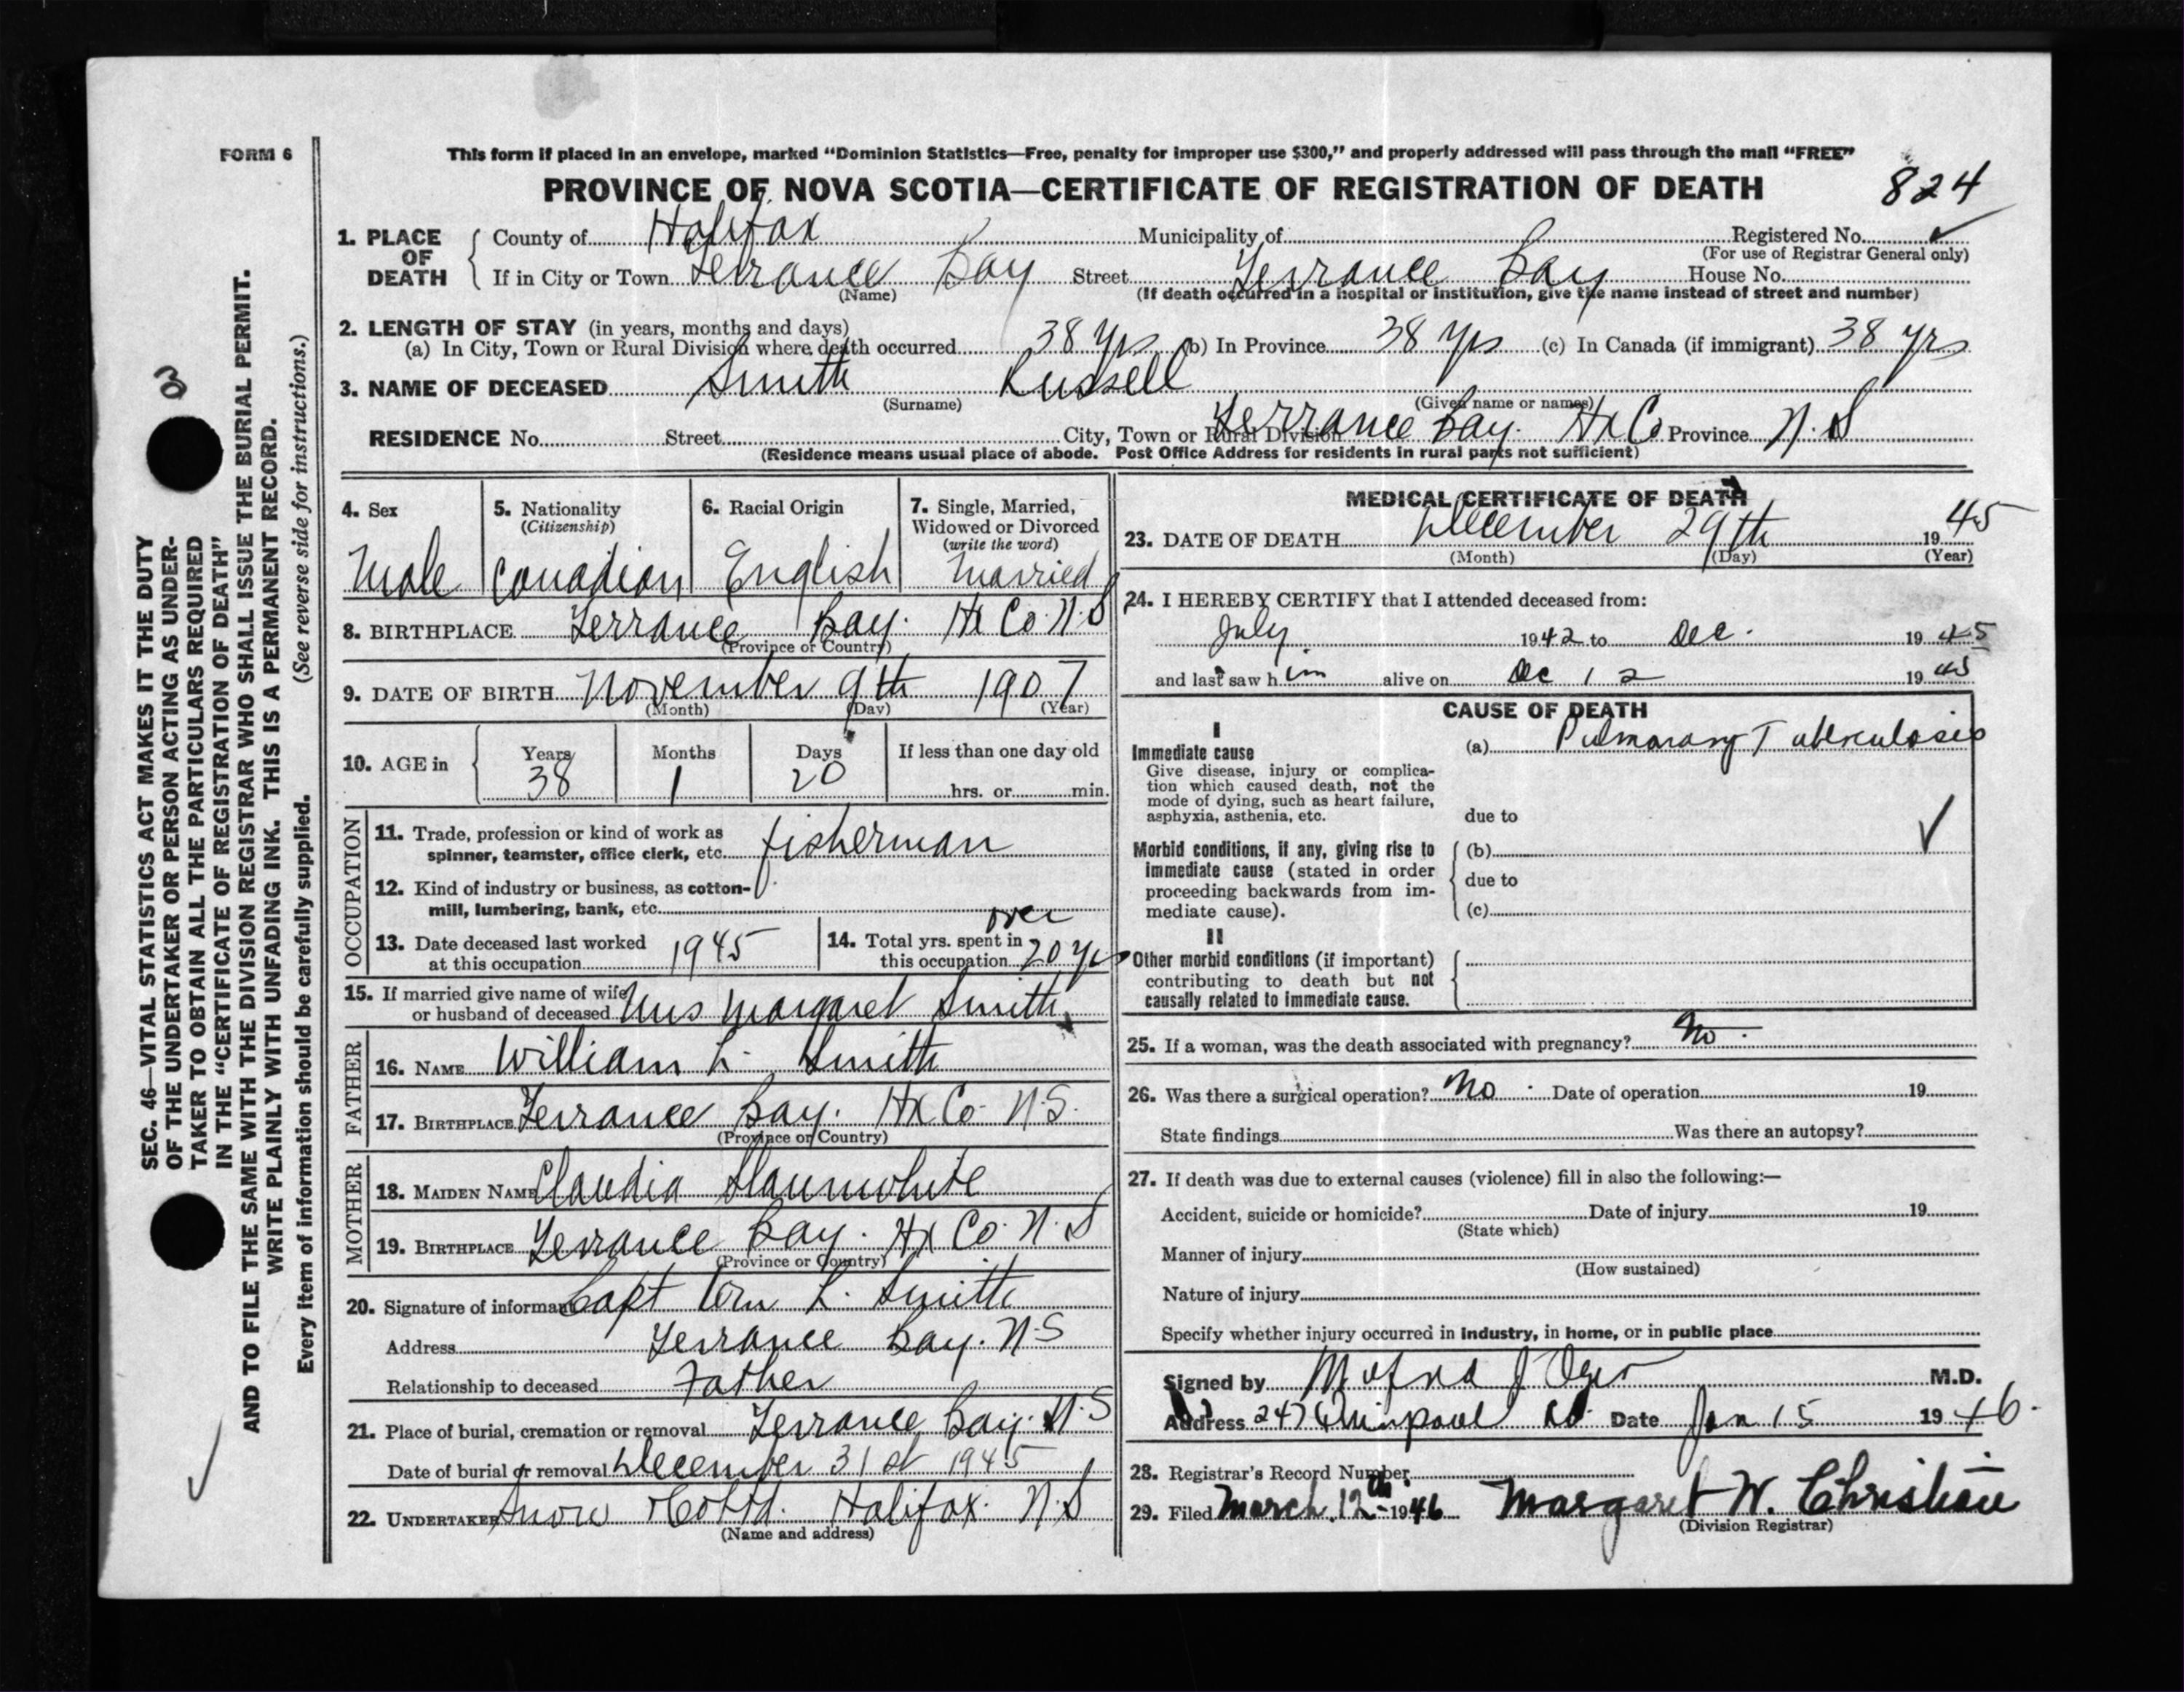 FORM 6
This form if placed in an envelope, marked “Dominion Statistics—Free, penalty for improper use $300,” and properly addressed will pass through the mail “FREE”
PROVINCE OF NOVA SCOTIA—CERTIFICATE OF REGISTRATION OF DEATH 824
1. PLACE OF DEATH
County of Halifax Municipality of Registered No. ✓
(For use of Registrar General only)
If in City or Town Terrance Bay Street Terrance Bay House No.
(Name) (If death occurred in a hospital or institution, give the name instead of street and number)
2. LENGTH OF STAY (in years, months and days)
(a) In City, Town or Rural Division where death occurred 38 yrs (b) In Province 38 yrs (c) In Canada (if immigrant) 38 yrs
3. NAME OF DECEASED Smith Russell
(Surname) (Given name or names)
RESIDENCE No. Street City, Town or Rural Division Terrance Bay. Hx Co Province N.S
(Residence means usual place of abode. Post Office Address for residents in rural parts not sufficient)
4. Sex
Male
5. Nationality
(Citizenship)
Canadian
6. Racial Origin
English
7. Single, Married,
Widowed or Divorced
(write the word)
Married
8. BIRTHPLACE Terrance Bay. Hx Co. N.S
(Province or Country)
9. DATE OF BIRTH November 9th 1907
(Month) (Day) (Year)
10. AGE in
Years Months Days If less than one day old
38 1 20 hrs. or min.
OCCUPATION
11. Trade, profession or kind of work as
spinner, teamster, office clerk, etc. fisherman
12. Kind of industry or business, as cotton-
mill, lumbering, bank, etc.
13. Date deceased last worked
at this occupation 1945
14. Total yrs. spent in over
this occupation 20 yrs
15. If married give name of wife
or husband of deceased Mrs Margaret Smith
FATHER
16. NAME William L. Smith
17. BIRTHPLACE Terrance Bay. Hx Co. N.S.
(Province or Country)
MOTHER
18. MAIDEN NAME Claudia Slaunwhite
19. BIRTHPLACE Terrance Bay. Hx Co. N.S
(Province or Country)
20. Signature of informant Capt Wm L. Smith
Address Terrance Bay. N.S
Relationship to deceased Father
21. Place of burial, cremation or removal Terrance Bay. N.S
Date of burial or removal December 31st 1945
22. UNDERTAKER Snow & Co Ltd. Halifax. N.S
(Name and address)
MEDICAL CERTIFICATE OF DEATH
23. DATE OF DEATH December 29th 1945
(Month) (Day) (Year)
24. I HEREBY CERTIFY that I attended deceased from:
July 1942 to Dec. 1945
and last saw him alive on Dec 12 1945
CAUSE OF DEATH
I
Immediate cause
Give disease, injury or complica-
tion which caused death, not the
mode of dying, such as heart failure,
asphyxia, asthenia, etc.
(a) Pulmonary Tuberculosis
due to
Morbid conditions, if any, giving rise to
immediate cause (stated in order
proceeding backwards from im-
mediate cause).
(b) ✓
due to
(c)
II
Other morbid conditions (if important)
contributing to death but not
causally related to immediate cause.
25. If a woman, was the death associated with pregnancy? No.
26. Was there a surgical operation? No. Date of operation 19
State findings Was there an autopsy?
27. If death was due to external causes (violence) fill in also the following:—
Accident, suicide or homicide? Date of injury 19
(State which)
Manner of injury
(How sustained)
Nature of injury
Specify whether injury occurred in industry, in home, or in public place
Signed by M.D.
Address 247 Quinpool Rd. Date Jan 15 1946.
28. Registrar's Record Number
29. Filed March 12th 1946 Margaret W. Christian
(Division Registrar)
SEC. 46—VITAL STATISTICS ACT MAKES IT THE DUTY
OF THE UNDERTAKER OR PERSON ACTING AS UNDER-
TAKER TO OBTAIN ALL THE PARTICULARS REQUIRED
IN THE “CERTIFICATE OF REGISTRATION OF DEATH”
AND TO FILE THE SAME WITH THE DIVISION REGISTRAR WHO SHALL ISSUE THE BURIAL PERMIT.
WRITE PLAINLY WITH UNFADING INK. THIS IS A PERMANENT RECORD.
Every item of information should be carefully supplied. (See reverse side for instructions.)